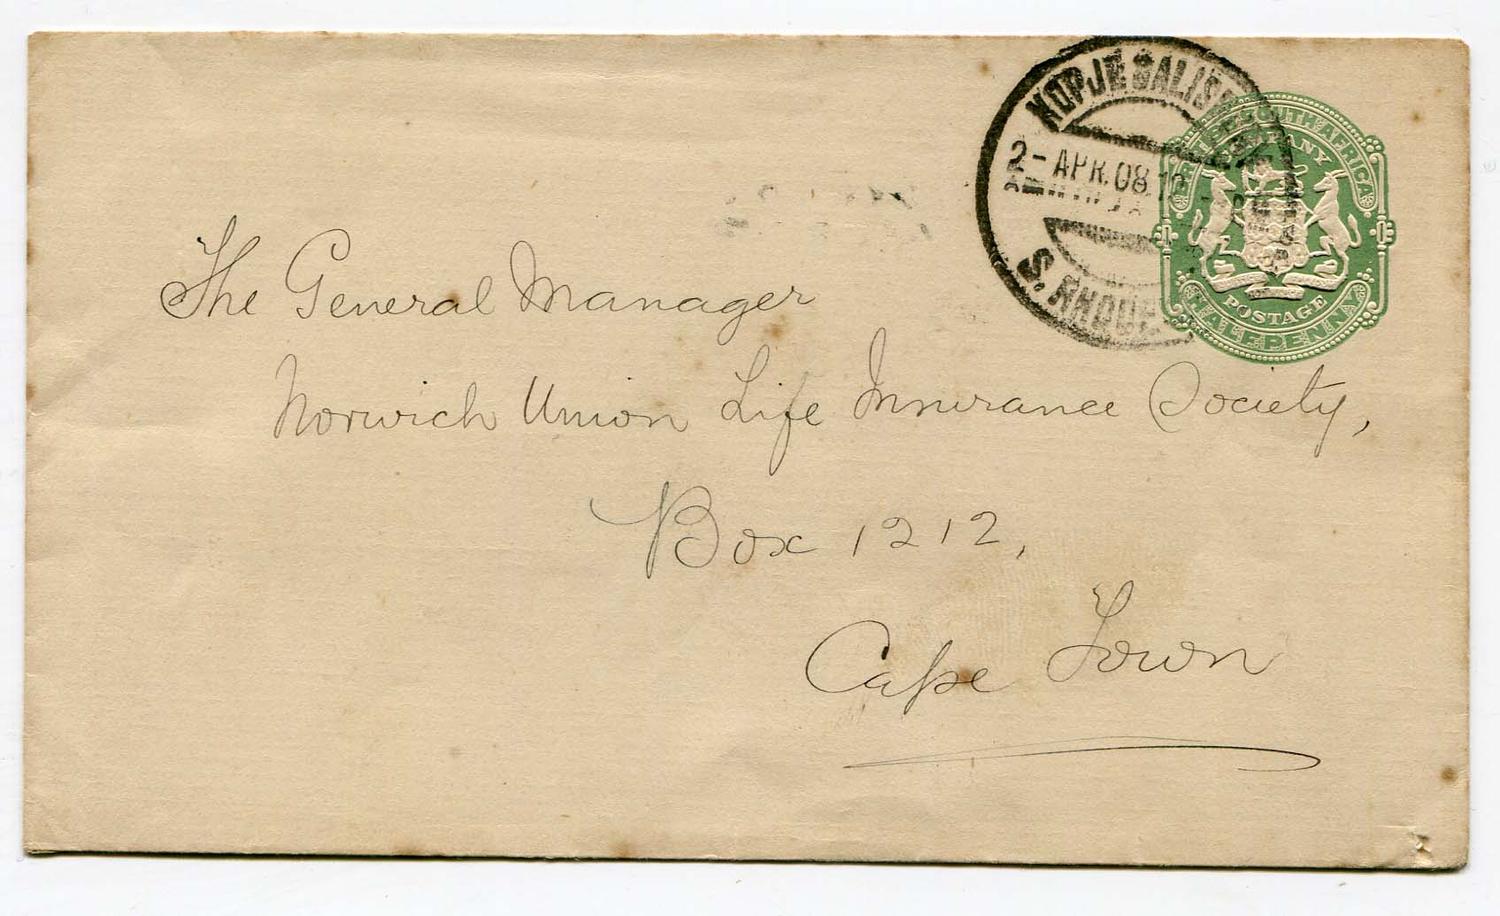 KOPJE SALIS
2- APR. 08
S. RHOD
SOUTH AFRICA
COMPANY
POSTAGE
HALFPENNY
The General Manager
Norwich Union Life Insurance Society,
Box 1212,
Cape Town